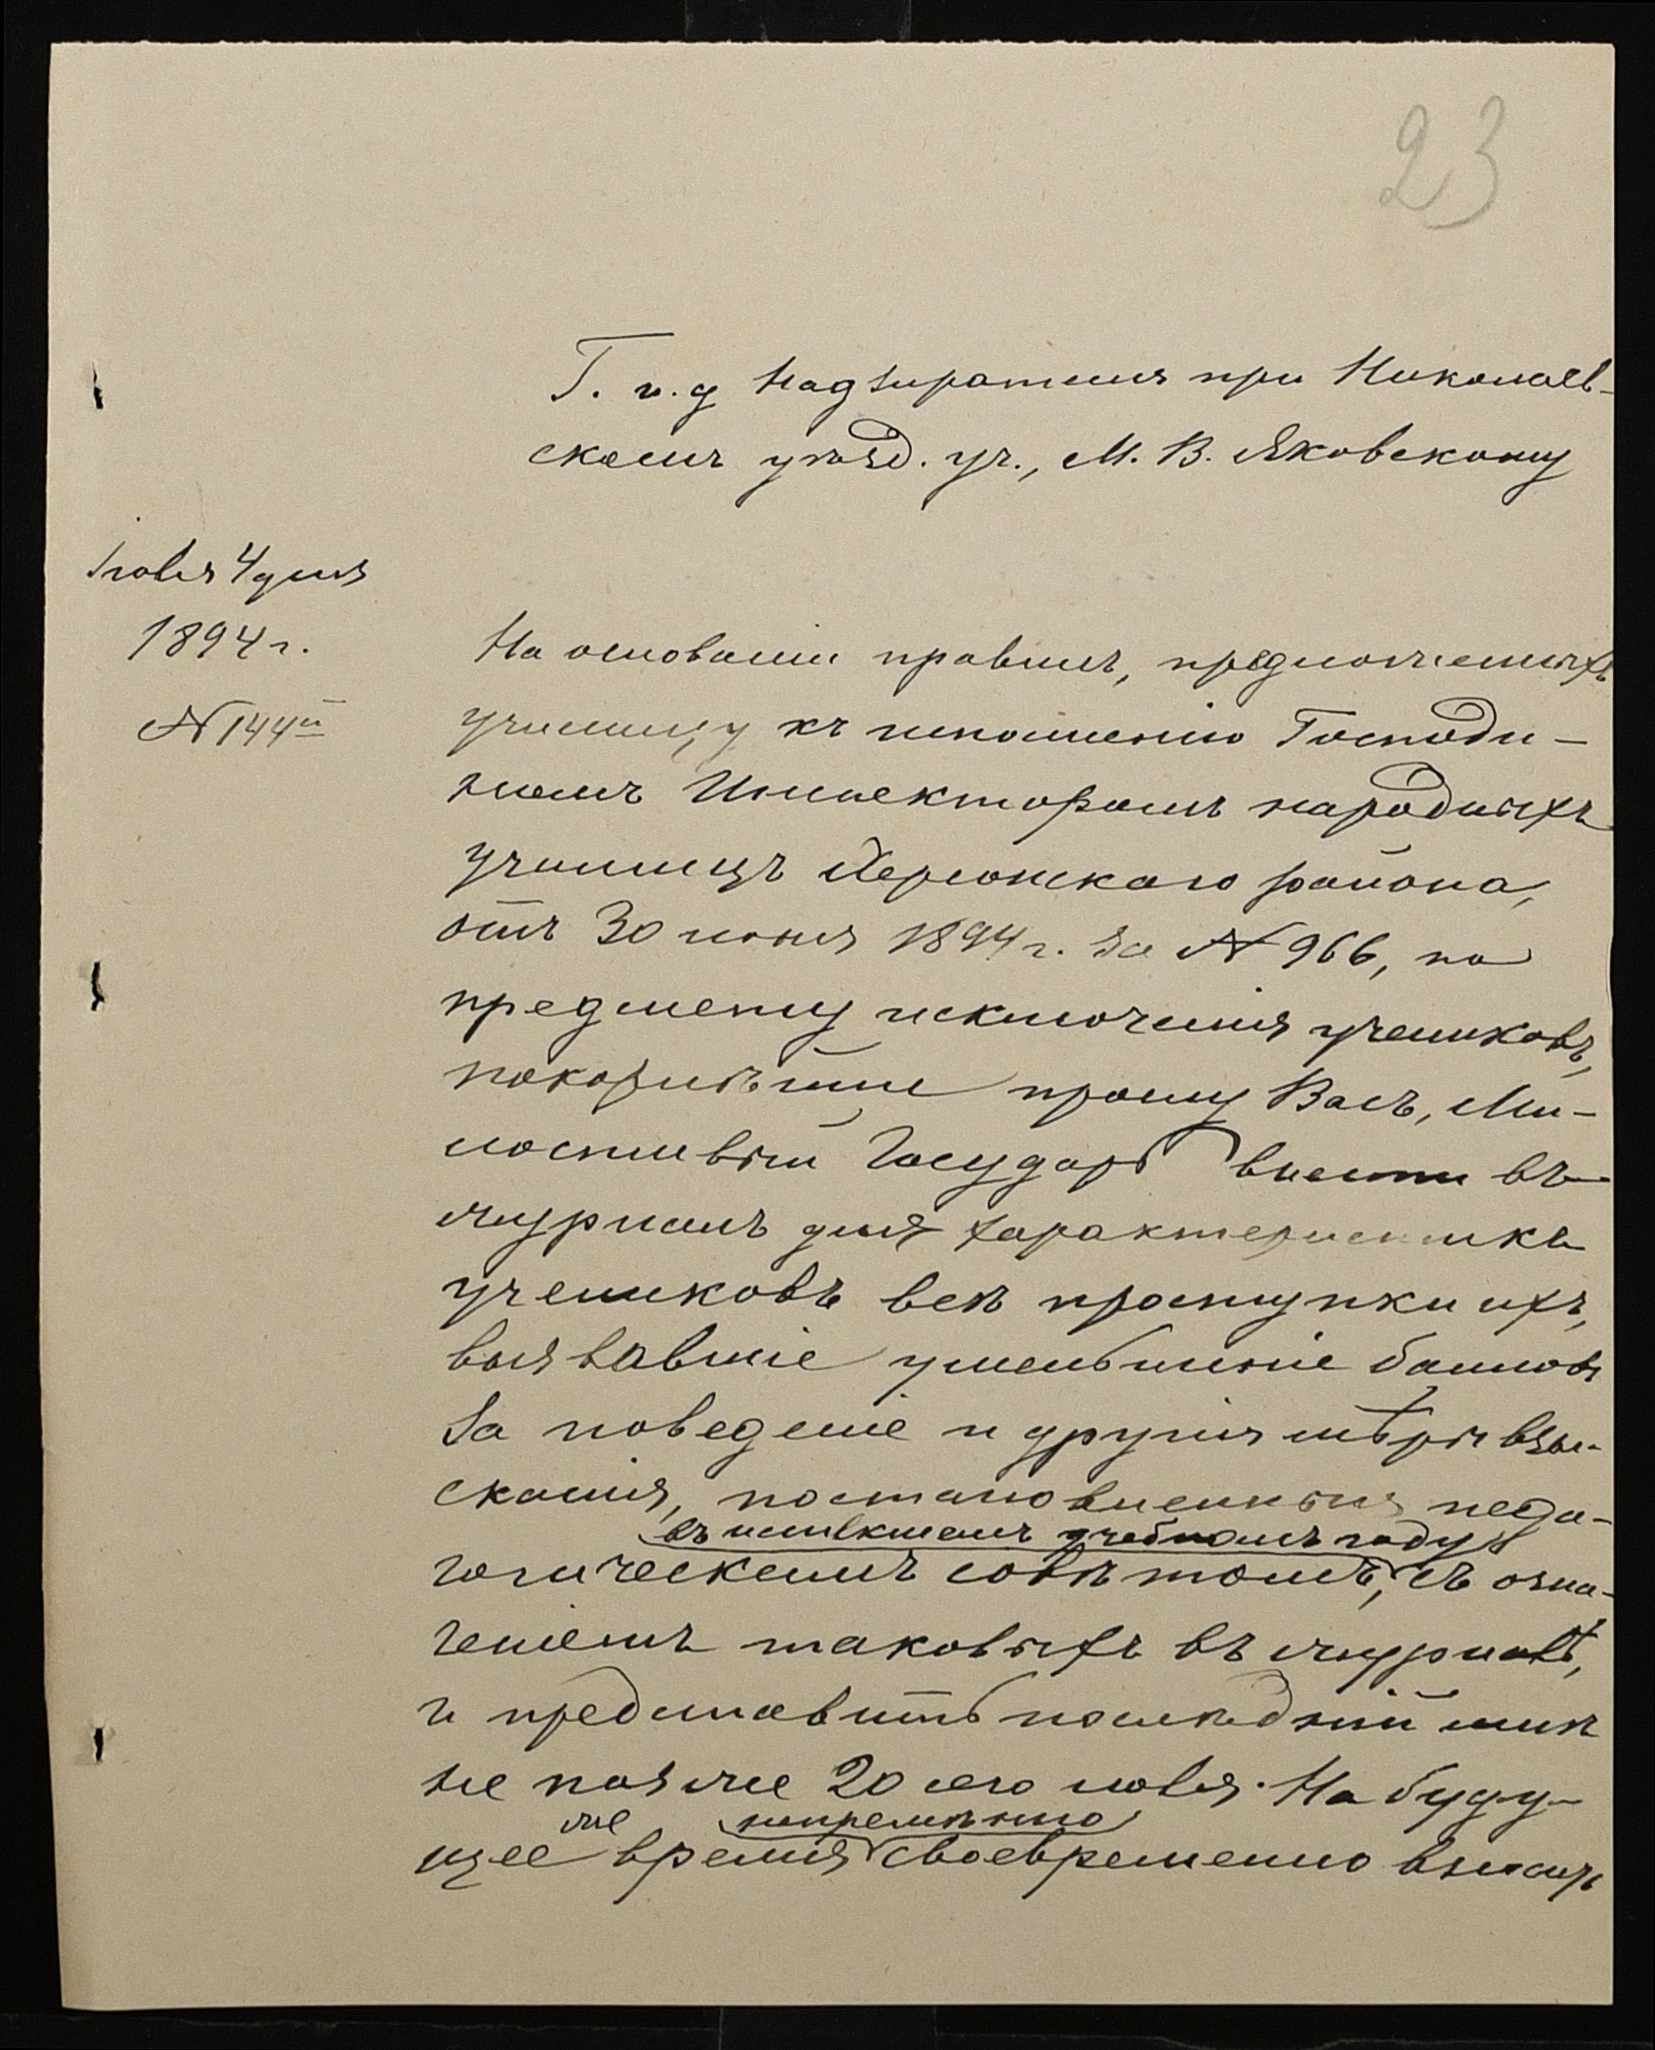 23
Г. и. д. Надзирателя при Николаев-
скомъ уѣзд. уч., М. В. Яковскому
Іюля 4 дня
1894 г.
№ 144й
На основаніи правилъ, предложенныхъ
училищу къ исполненію Господи-
номъ Инспекторомъ народныхъ
училищъ Херсонскаго района,
отъ 30 июня 1894 г. за № 966, по
предмету исключенія учениковъ,
покорнѣйше прошу Васъ, Ми-
лостивый Государь внести въ
журналъ для характеристики
учениковъ всѣ проступки ихъ,
вызвавшіе уменьшеніе балловъ
за поведеніе и другія мѣры взы-
сканія, постановленныя педа-
въ истекшемъ учебномъ году
гогическимъ совѣтомъ, съ озна-
ченіемъ таковыхъ въ журналѣ,
и представить послѣдній мнѣ
не позже 20 сего июля. На буду-
же непремѣнно
щее время своевременно вносить